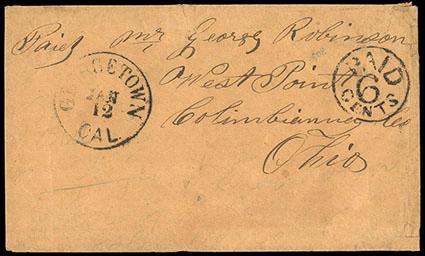 Paid Mr George Robinson
West Point
Columbianna Co
Ohio
GEORGETOWN
JAN
12
CAL.
PAID
6
CENTS